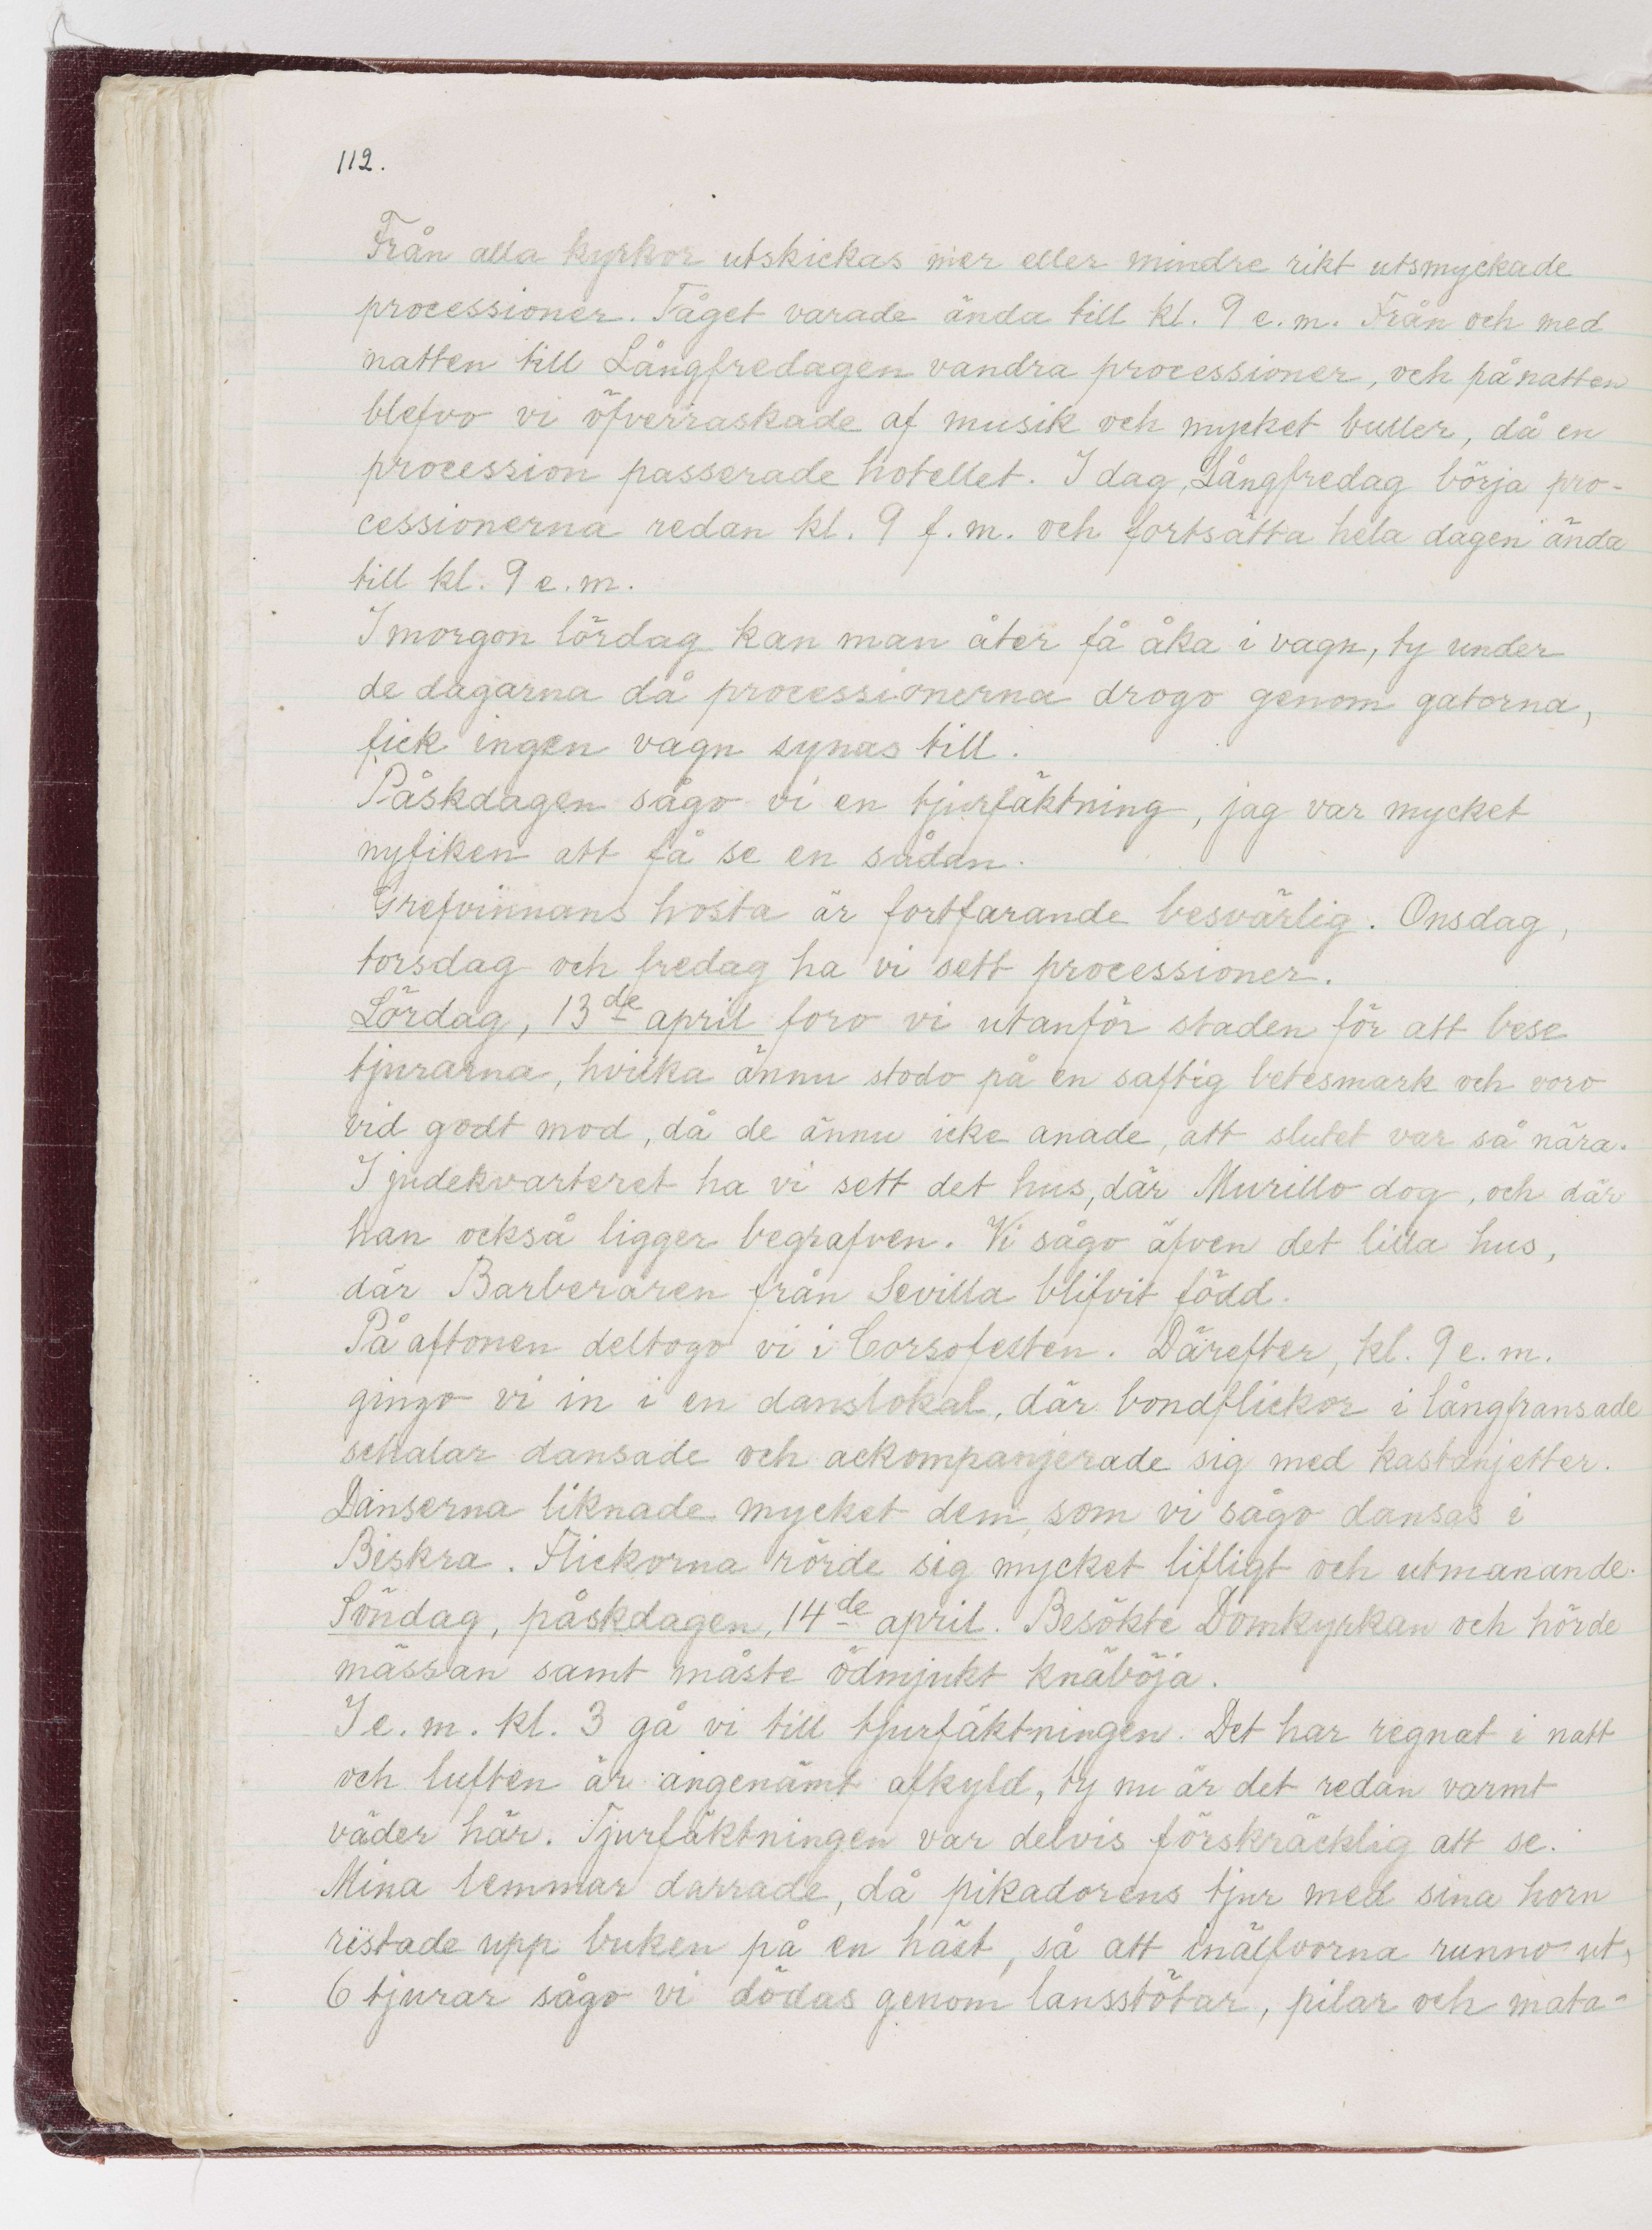 112.
Från alla kyrkor utskickas mer eller mindre rikt utsmyckade
processioner. Tåget varade ända till kl. 9 e.m. Från och med
natten till Långfredagen vandra processioner, och på natten
blefvo vi öfverraskade af musik och mycket buller, då en
procession passerade hotellet. I dag, Långfredag börja pro-
cessionerna redan kl. 9 f.m. och fortsätta hela dagen ända
till kl. 9 e.m.
I morgon lördag kan man åter få åka i vagn, ty under
de dagarna då processionerna drogo genom gatorna,
fick ingen vagn synas till.
Påskdagen sågo vi en tjurfäktning, jag var mycket
nyfiken att få se en sådan.
Grefvinnans hosta är fortfarande besvärlig. Onsdag,
torsdag och fredag ha vi sett processioner.
Lördag, 13de april foro vi utanför staden för att bese
tjurarna, hvilka ännu stodo på en saftig betesmark och voro
vid godt mod, då de ännu icke anade, att slutet var så nära.
I judekvarteret ha vi sett det hus, där Murillo dog, och där
han också ligger begrafven. Vi sågo äfven det lilla hus,
där Barberaren från Sevilla blifvit född.
På aftonen deltogo vi i Corsofesten. Därefter, kl. 9 e.m.
gingo vi in i en danslokal, där bondflickor i långfransade
schalar dansade och ackompanjerade sig med kastanjetter.
Danserna liknade mycket dem, som vi sågo dansas i
Biskra. Flickorna rörde sig mycket lifligt och utmanande.
Söndag, påskdagen, 14de april. Besökte Domkyrkan och hörde
mässan samt måste ödmjukt knäböja.
I e.m. kl. 3 gå vi till tjurfäktningen. Det har regnat i natt
och luften är angenämt afkyld, ty nu är det redan varmt
väder här. Tjurfäktningen var delvis förskräcklig att se.
Mina lemmar darrade, då pikadorens tjur med sina horn
ristade upp buken på en häst, så att inälfvorna runno ut,
6 tjurar sågo vi dödas genom lansstötar, pilar och mata-